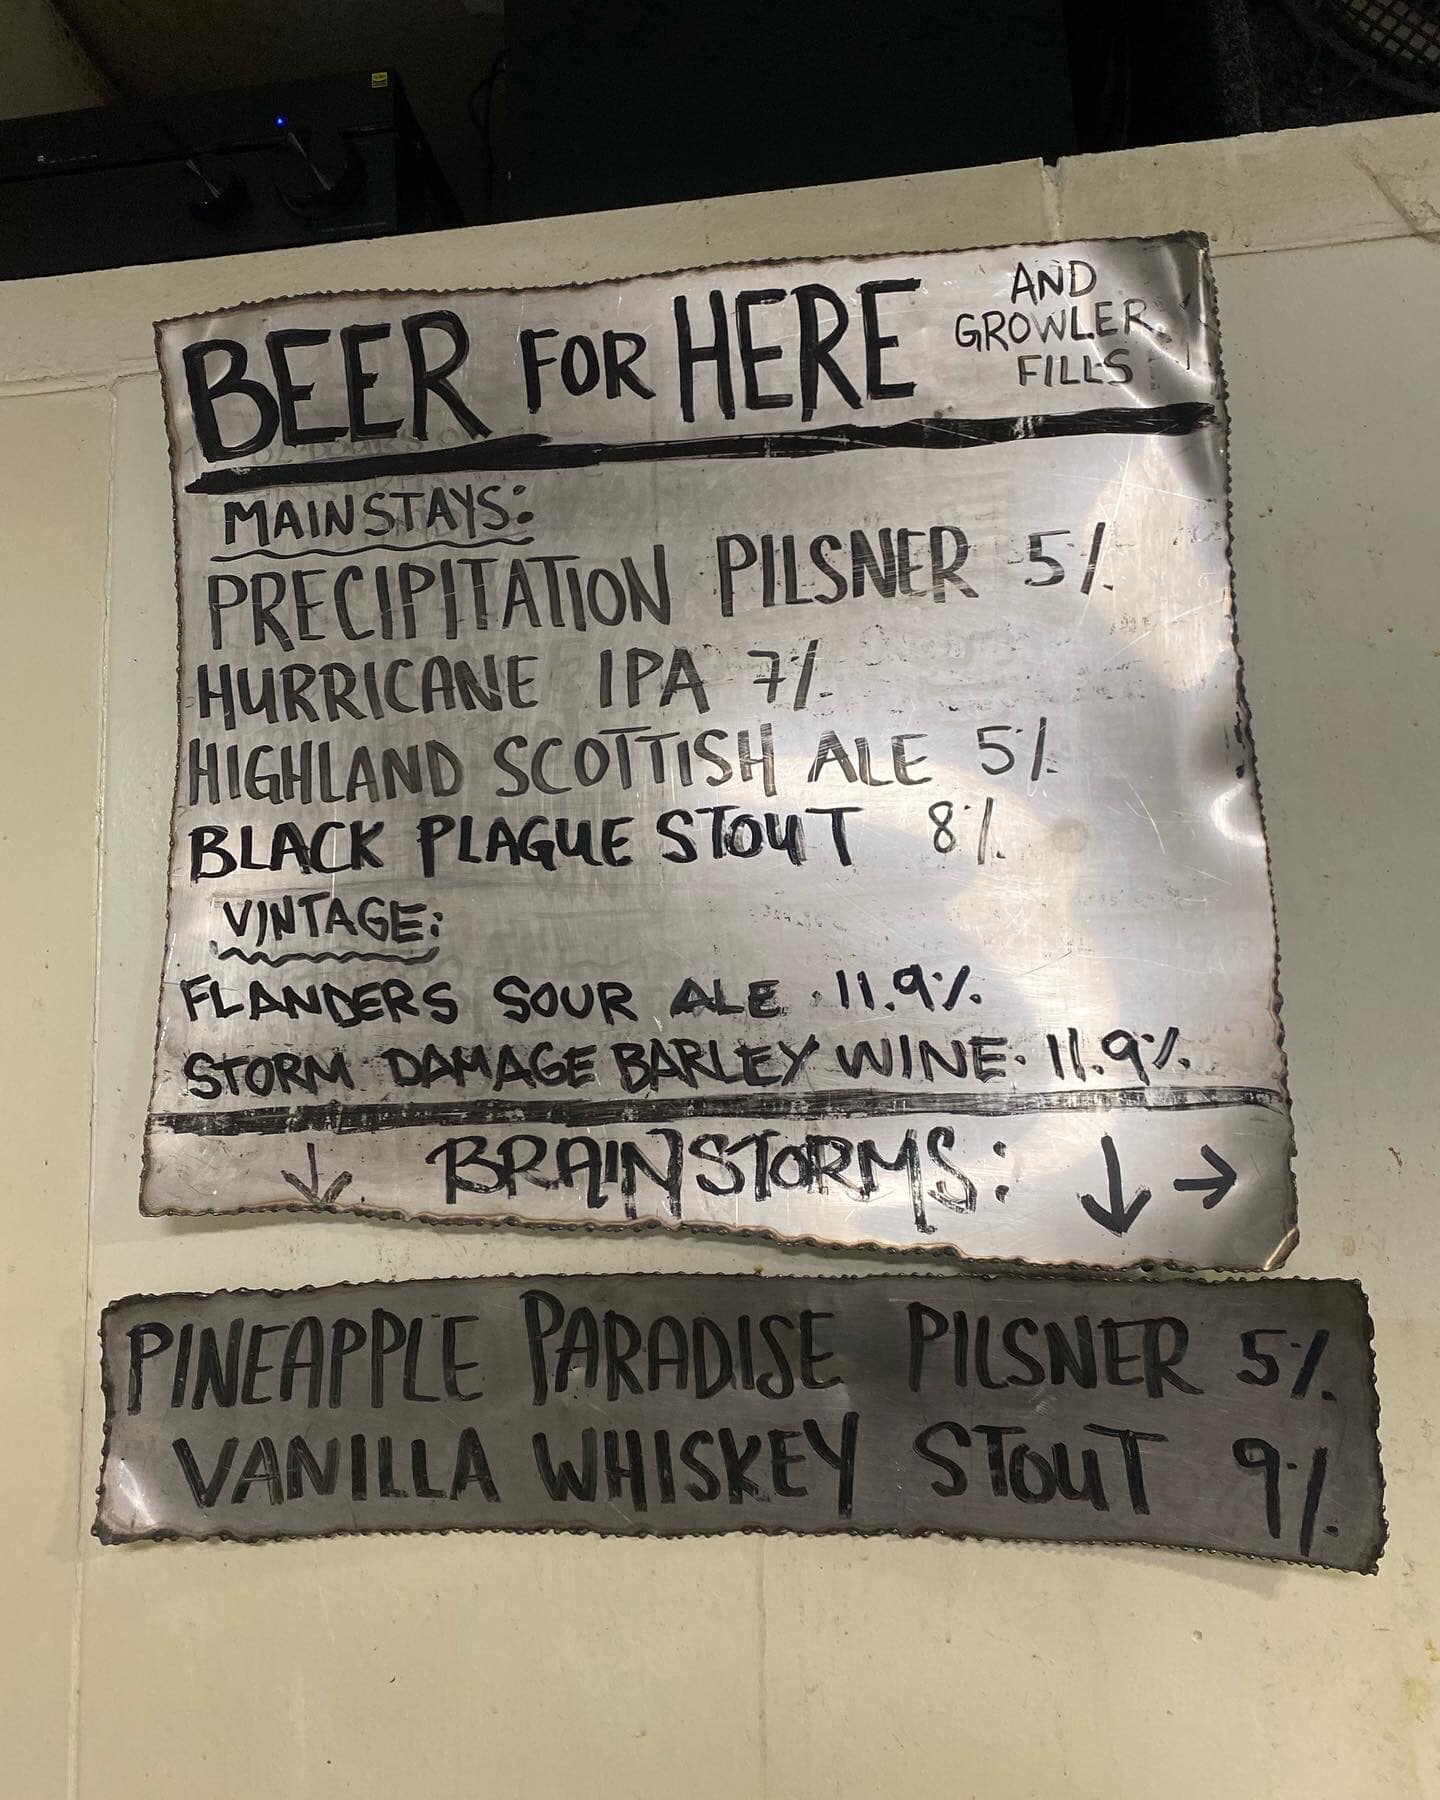 BEER FOR HERE
AND
GROWLER
FILLS
MAINSTAYS:
PRECIPITATION PILSNER 5%
HURRICANE IPA 7%
HIGHLAND SCOTTISH ALE 5%
BLACK PLAGUE STOUT 8%
VINTAGE:
FLANDERS SOUR ALE · 11.9%
STORM DAMAGE BARLEY WINE · 11.9%
↓ BRAINSTORMS: ↓ →
PINEAPPLE PARADISE PILSNER 5%
VANILLA WHISKEY STOUT 9%